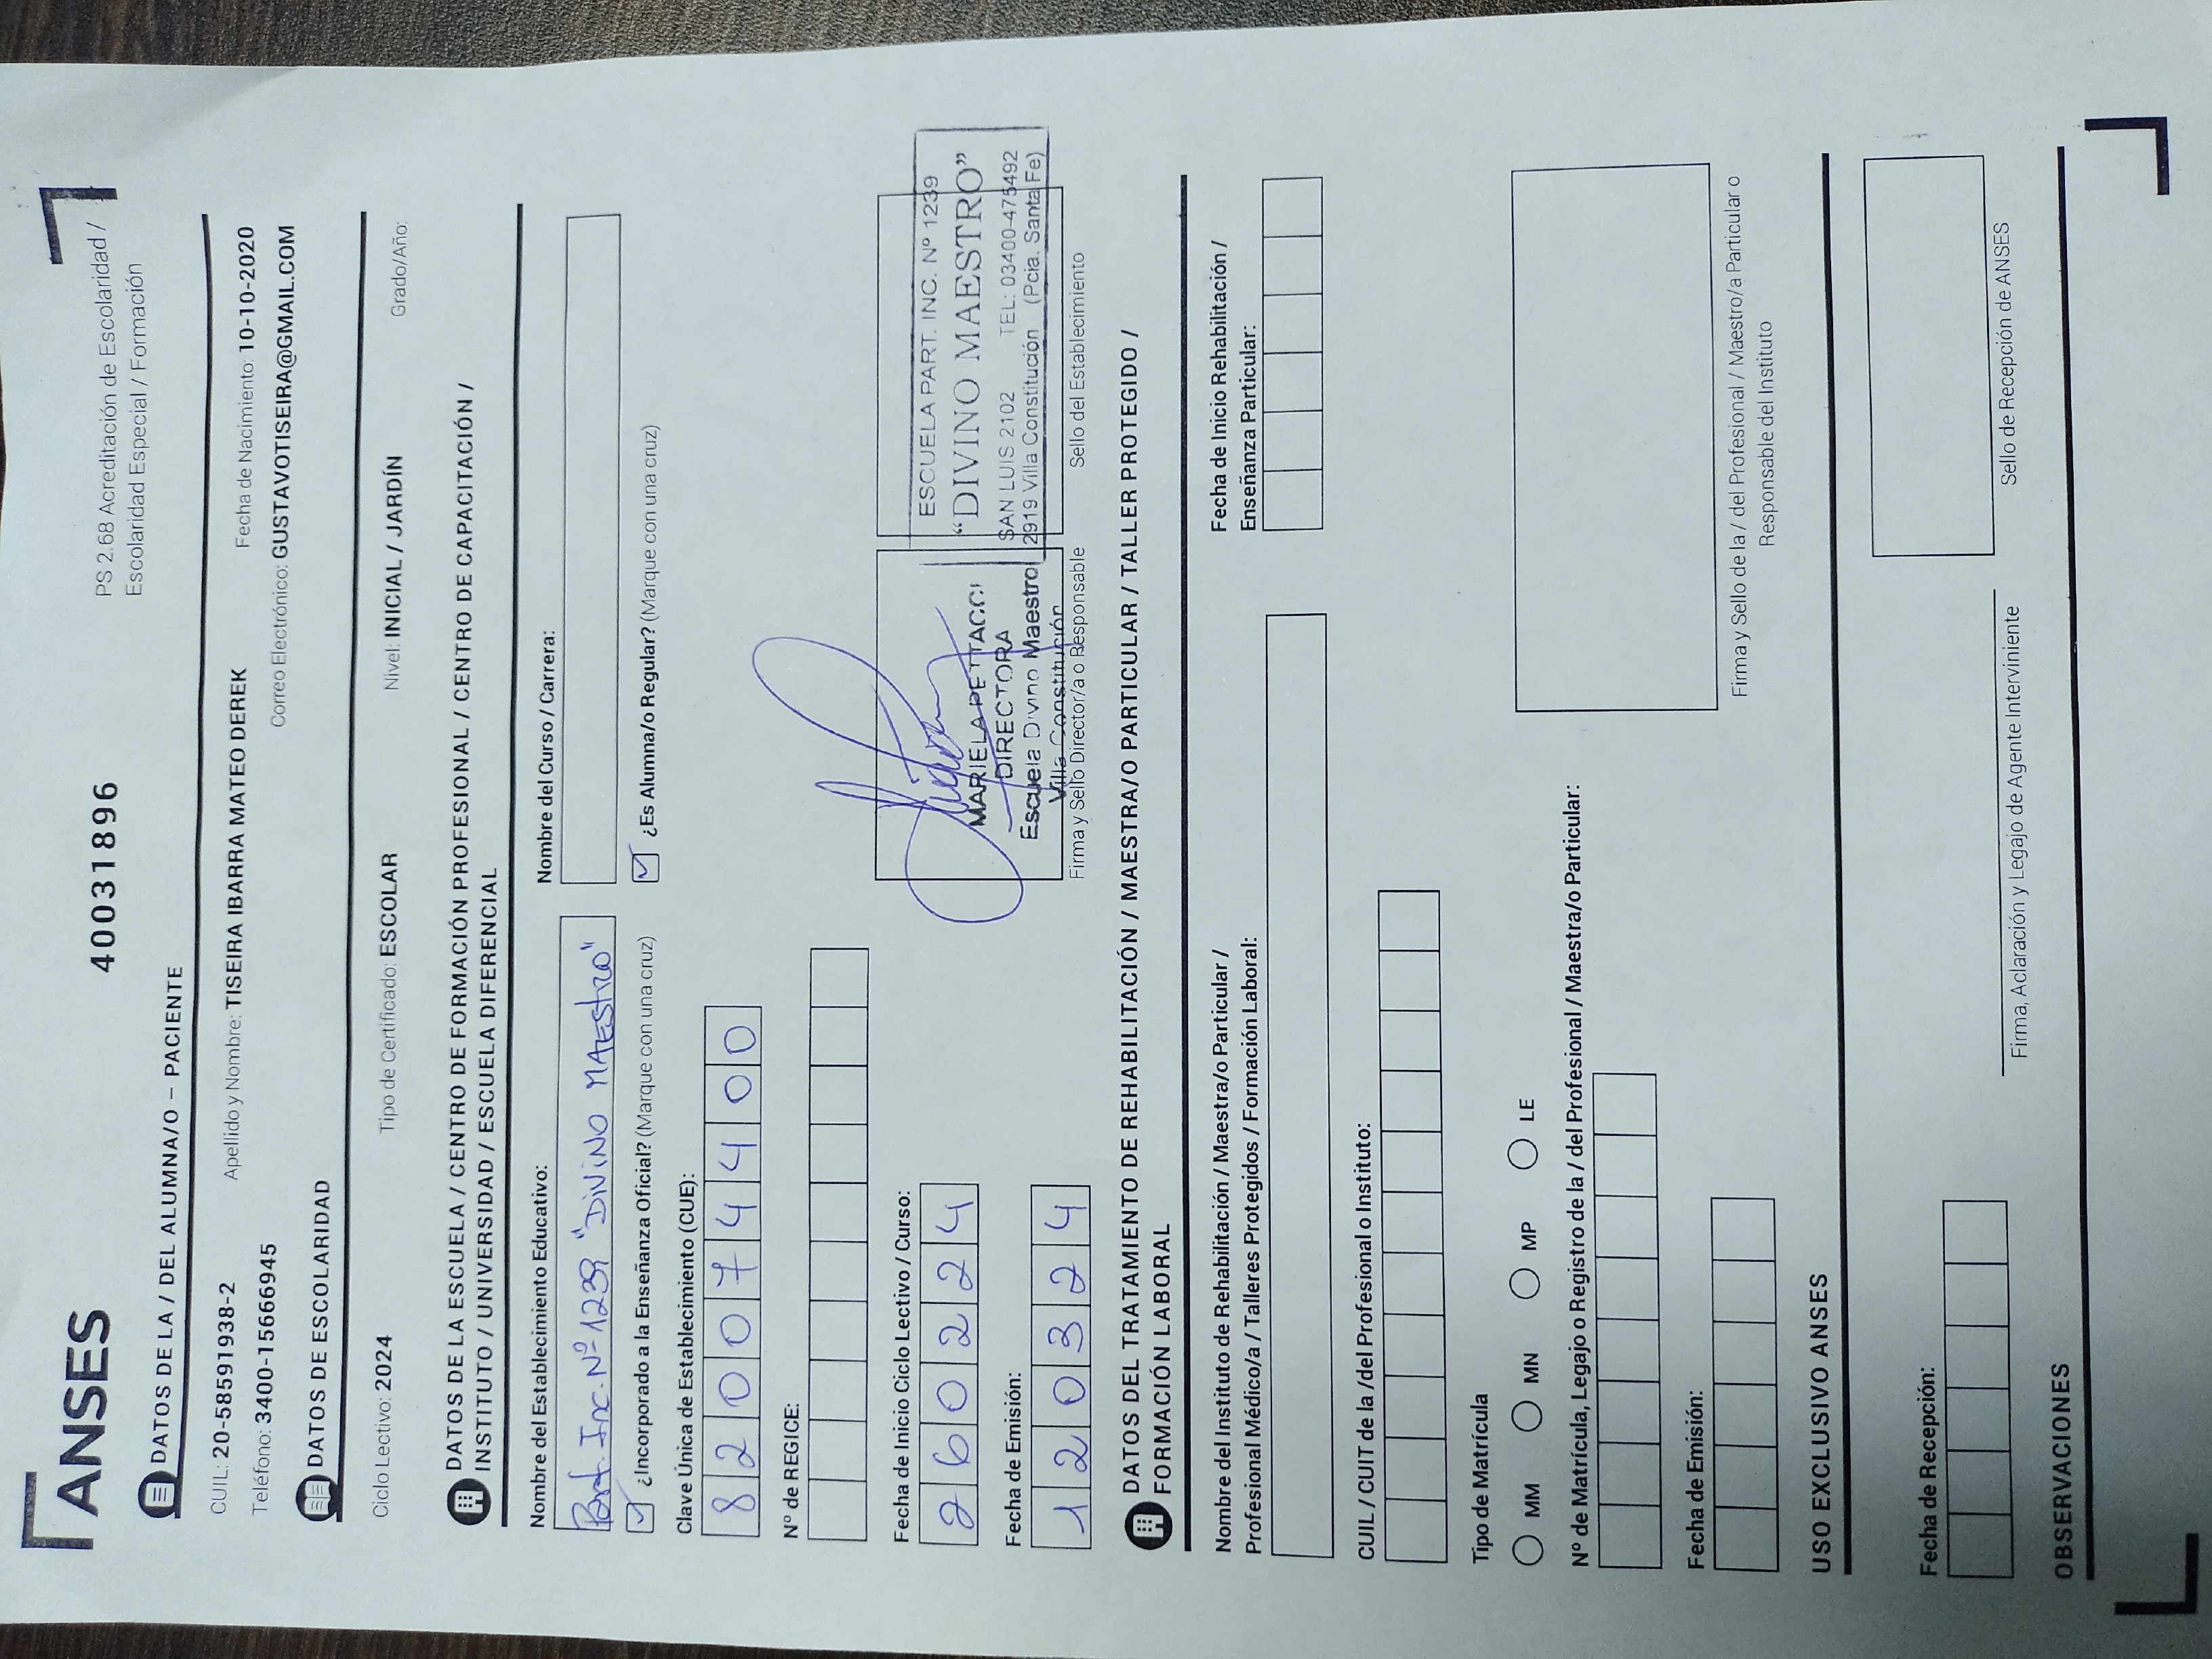 ANSES
40031896
PS 2.68 Acreditación de Escolaridad /
Escolaridad Especial / Formación
DATOS DE LA / DEL ALUMNA/O – PACIENTE
CUIL: 20-58591938-2
Apellido y Nombre: TISEIRA IBARRA MATEO DEREK
Fecha de Nacimiento: 10-10-2020
Teléfono: 3400-15666945
Correo Electrónico: GUSTAVOTISEIRA@GMAIL.COM
DATOS DE ESCOLARIDAD
Ciclo Lectivo: 2024
Tipo de Certificado: ESCOLAR
Nivel: INICIAL / JARDÍN
Grado/Año:
DATOS DE LA ESCUELA / CENTRO DE FORMACIÓN PROFESIONAL / CENTRO DE CAPACITACIÓN /
INSTITUTO / UNIVERSIDAD / ESCUELA DIFERENCIAL
Nombre del Establecimiento Educativo:
Nombre del Curso / Carrera:
Part. Inc. Nº 1239 "DiViNO MAEStRO"
¿Incorporado a la Enseñanza Oficial? (Marque con una cruz)
¿Es Alumna/o Regular? (Marque con una cruz)
Clave Única de Establecimiento (CUE):
820074400
Nº de REGICE:
Fecha de Inicio Ciclo Lectivo / Curso:
260224
Fecha de Emisión:
120324
MARIELA PETTACCI
DIRECTORA
Escuela Divino Maestro
Villa Constitución
Firma y Sello Director/a o Responsable
ESCUELA PART. INC. Nº 1239
"DIVINO MAESTRO"
SAN LUIS 2102 TEL: 03400-475492
2919 Villa Constitución (Pcia. Santa Fe)
Sello del Establecimiento
DATOS DEL TRATAMIENTO DE REHABILITACIÓN / MAESTRA/O PARTICULAR / TALLER PROTEGIDO /
FORMACIÓN LABORAL
Nombre del Instituto de Rehabilitación / Maestra/o Particular /
Profesional Médico/a / Talleres Protegidos / Formación Laboral:
Fecha de Inicio Rehabilitación /
Enseñanza Particular:
CUIL / CUIT de la /del Profesional o Instituto:
Tipo de Matrícula
MM MN MP LE
Nº de Matrícula, Legajo o Registro de la / del Profesional / Maestra/o Particular:
Fecha de Emisión:
Firma y Sello de la / del Profesional / Maestro/a Particular o
Responsable del Instituto
USO EXCLUSIVO ANSES
Fecha de Recepción:
Firma, Aclaración y Legajo de Agente Interviniente
Sello de Recepción de ANSES
OBSERVACIONES